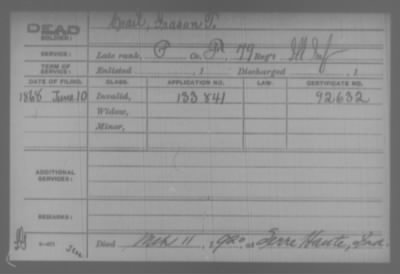 DEAD
SOLDIER:
SERVICE: Late rank, P Co. 79 Reg't Ill Inf
TERM OF SERVICE: Enlisted , 1 Discharged , 1
DATE OF FILING. CLASS. APPLICATION NO. LAW. CERTIFICATE NO.
1868 June 10 Invalid, 133 841 92632
Widow,
Minor,
ADDITIONAL SERVICES:
REMARKS:
Died 11, 1920, at Terre Haute, Ind.